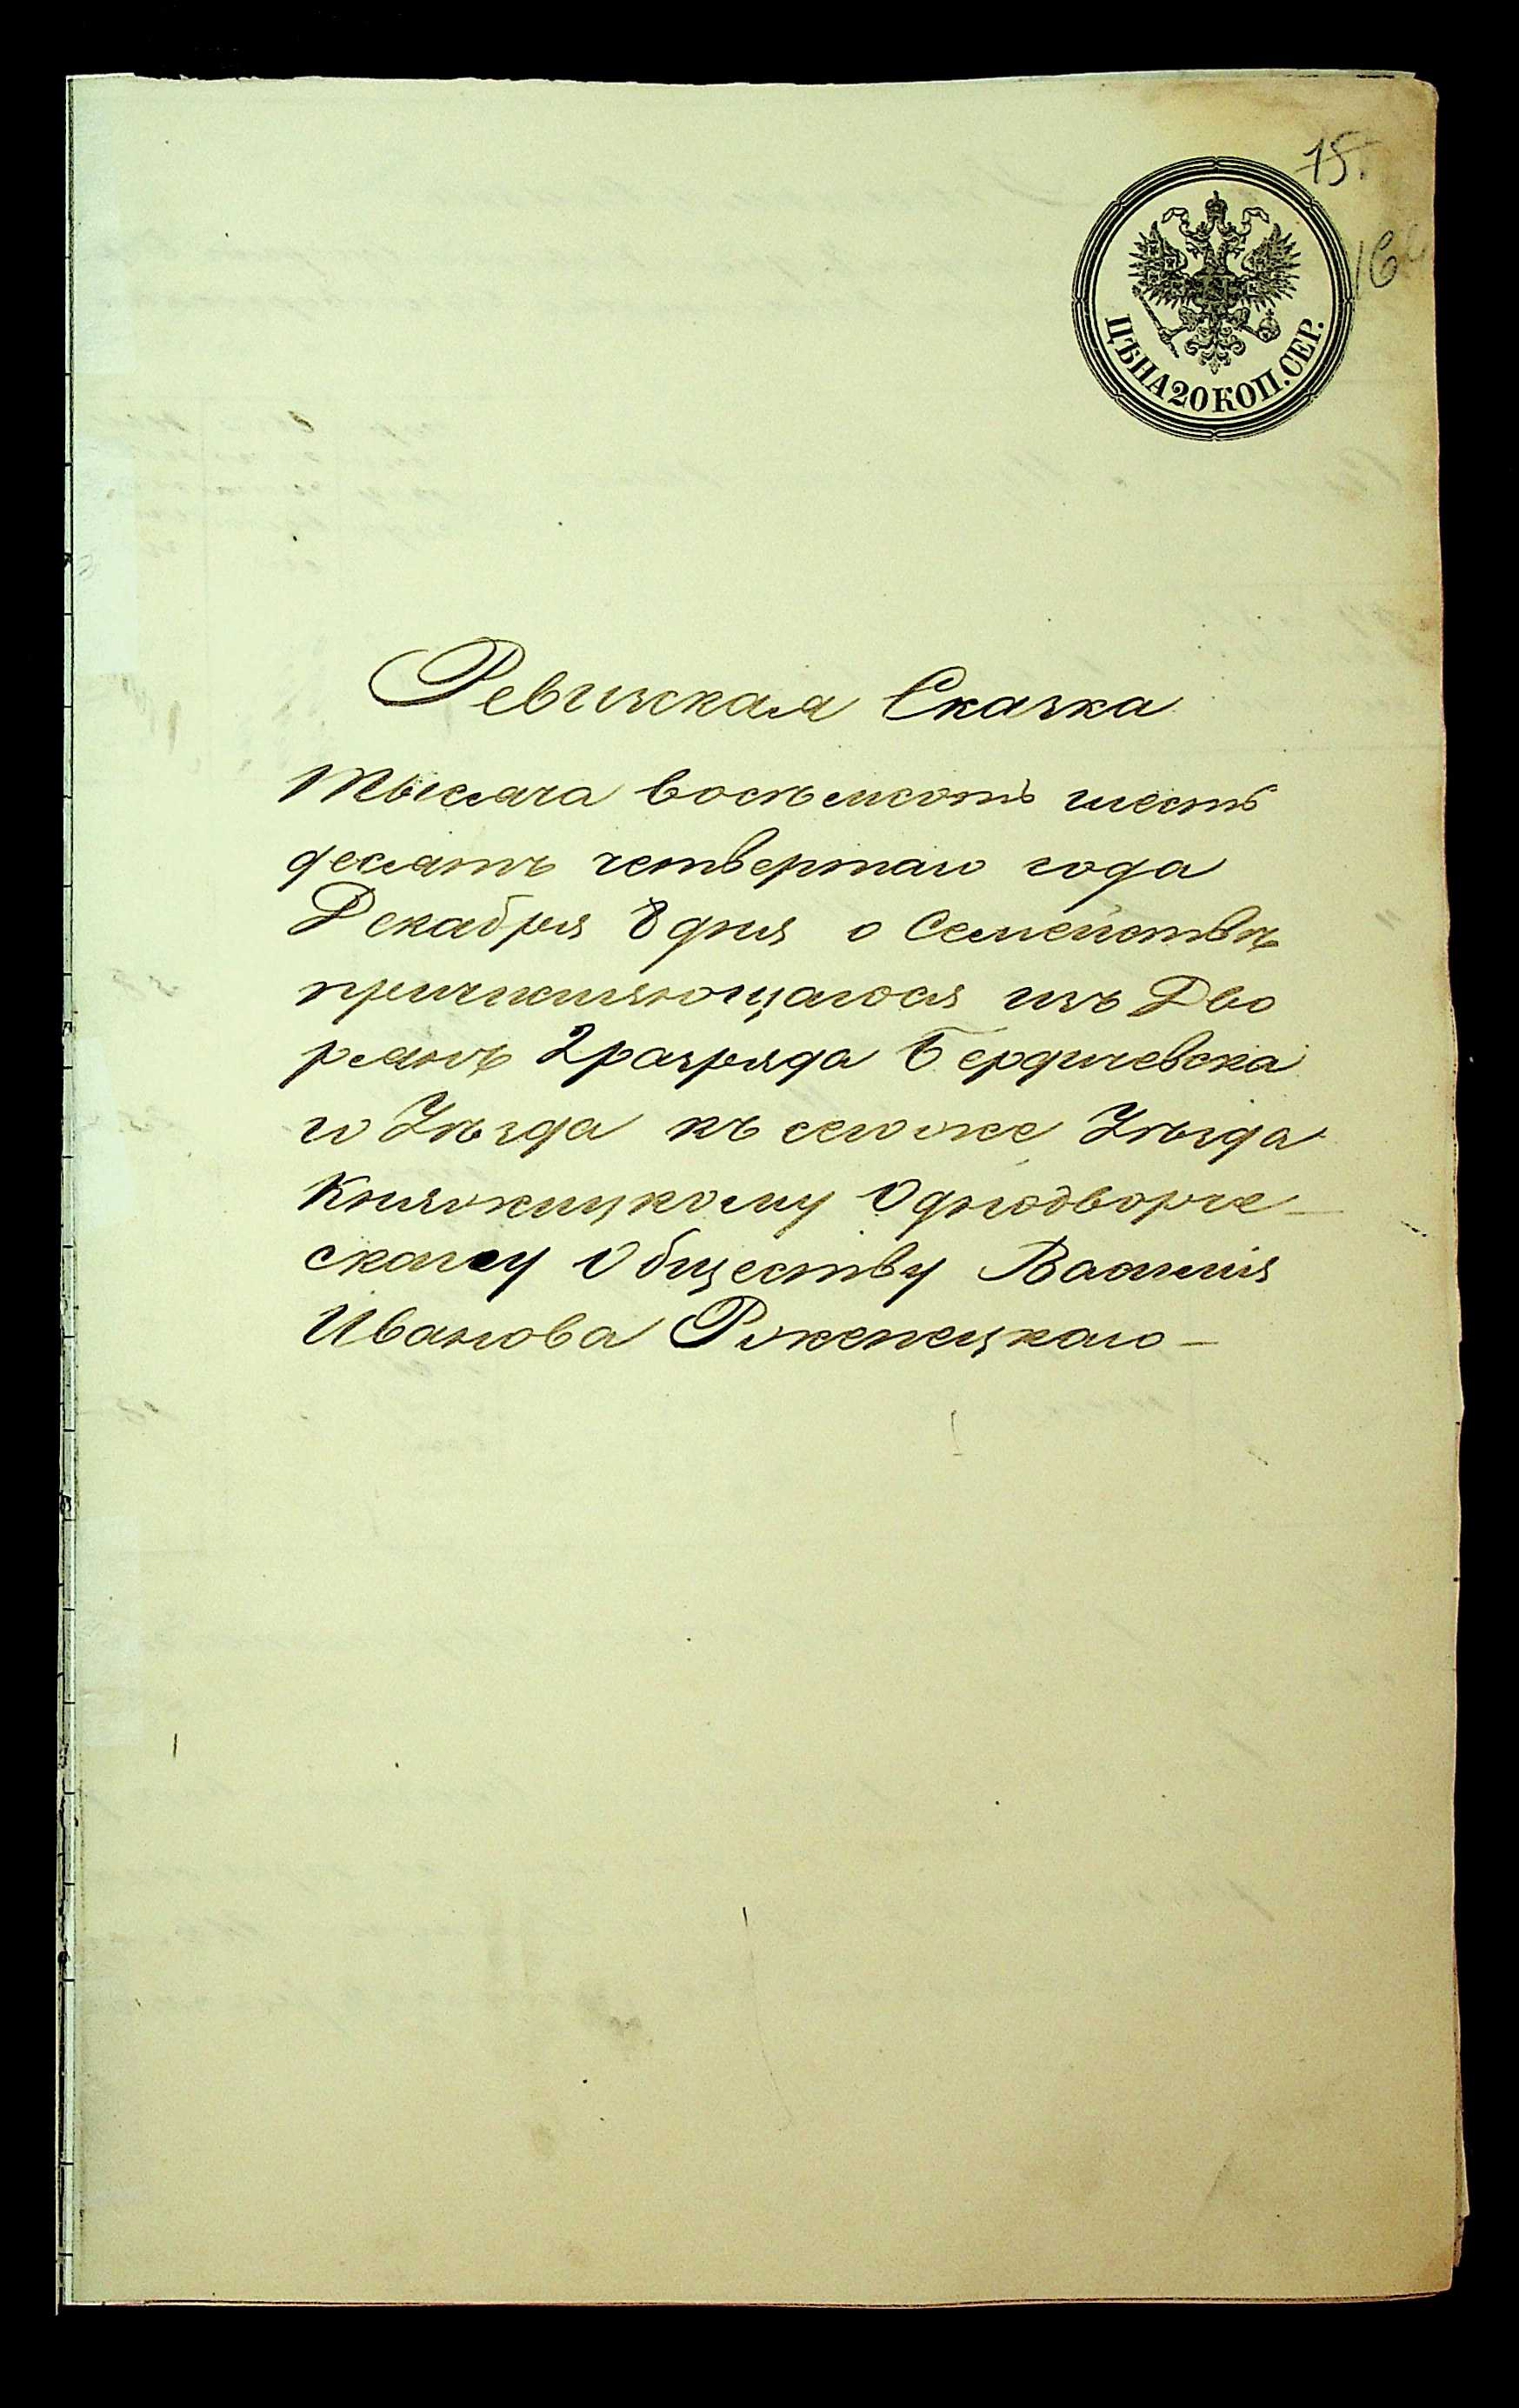 15.
16
ЦѢНА 20 КОП. СЕР.
Ревизская Сказка
Тысяча восемьсотъ шесть
десятъ четвертаго года
Декабря 8 дня о Семействѣ
причисляющагося изъ Дво
рянъ 2 разряда Бердичевска
го Уѣзда къ сегоже Уѣзда
Княжицкому Однодворче-
скому Обществу Василія
Иванова Ружепецкаго -